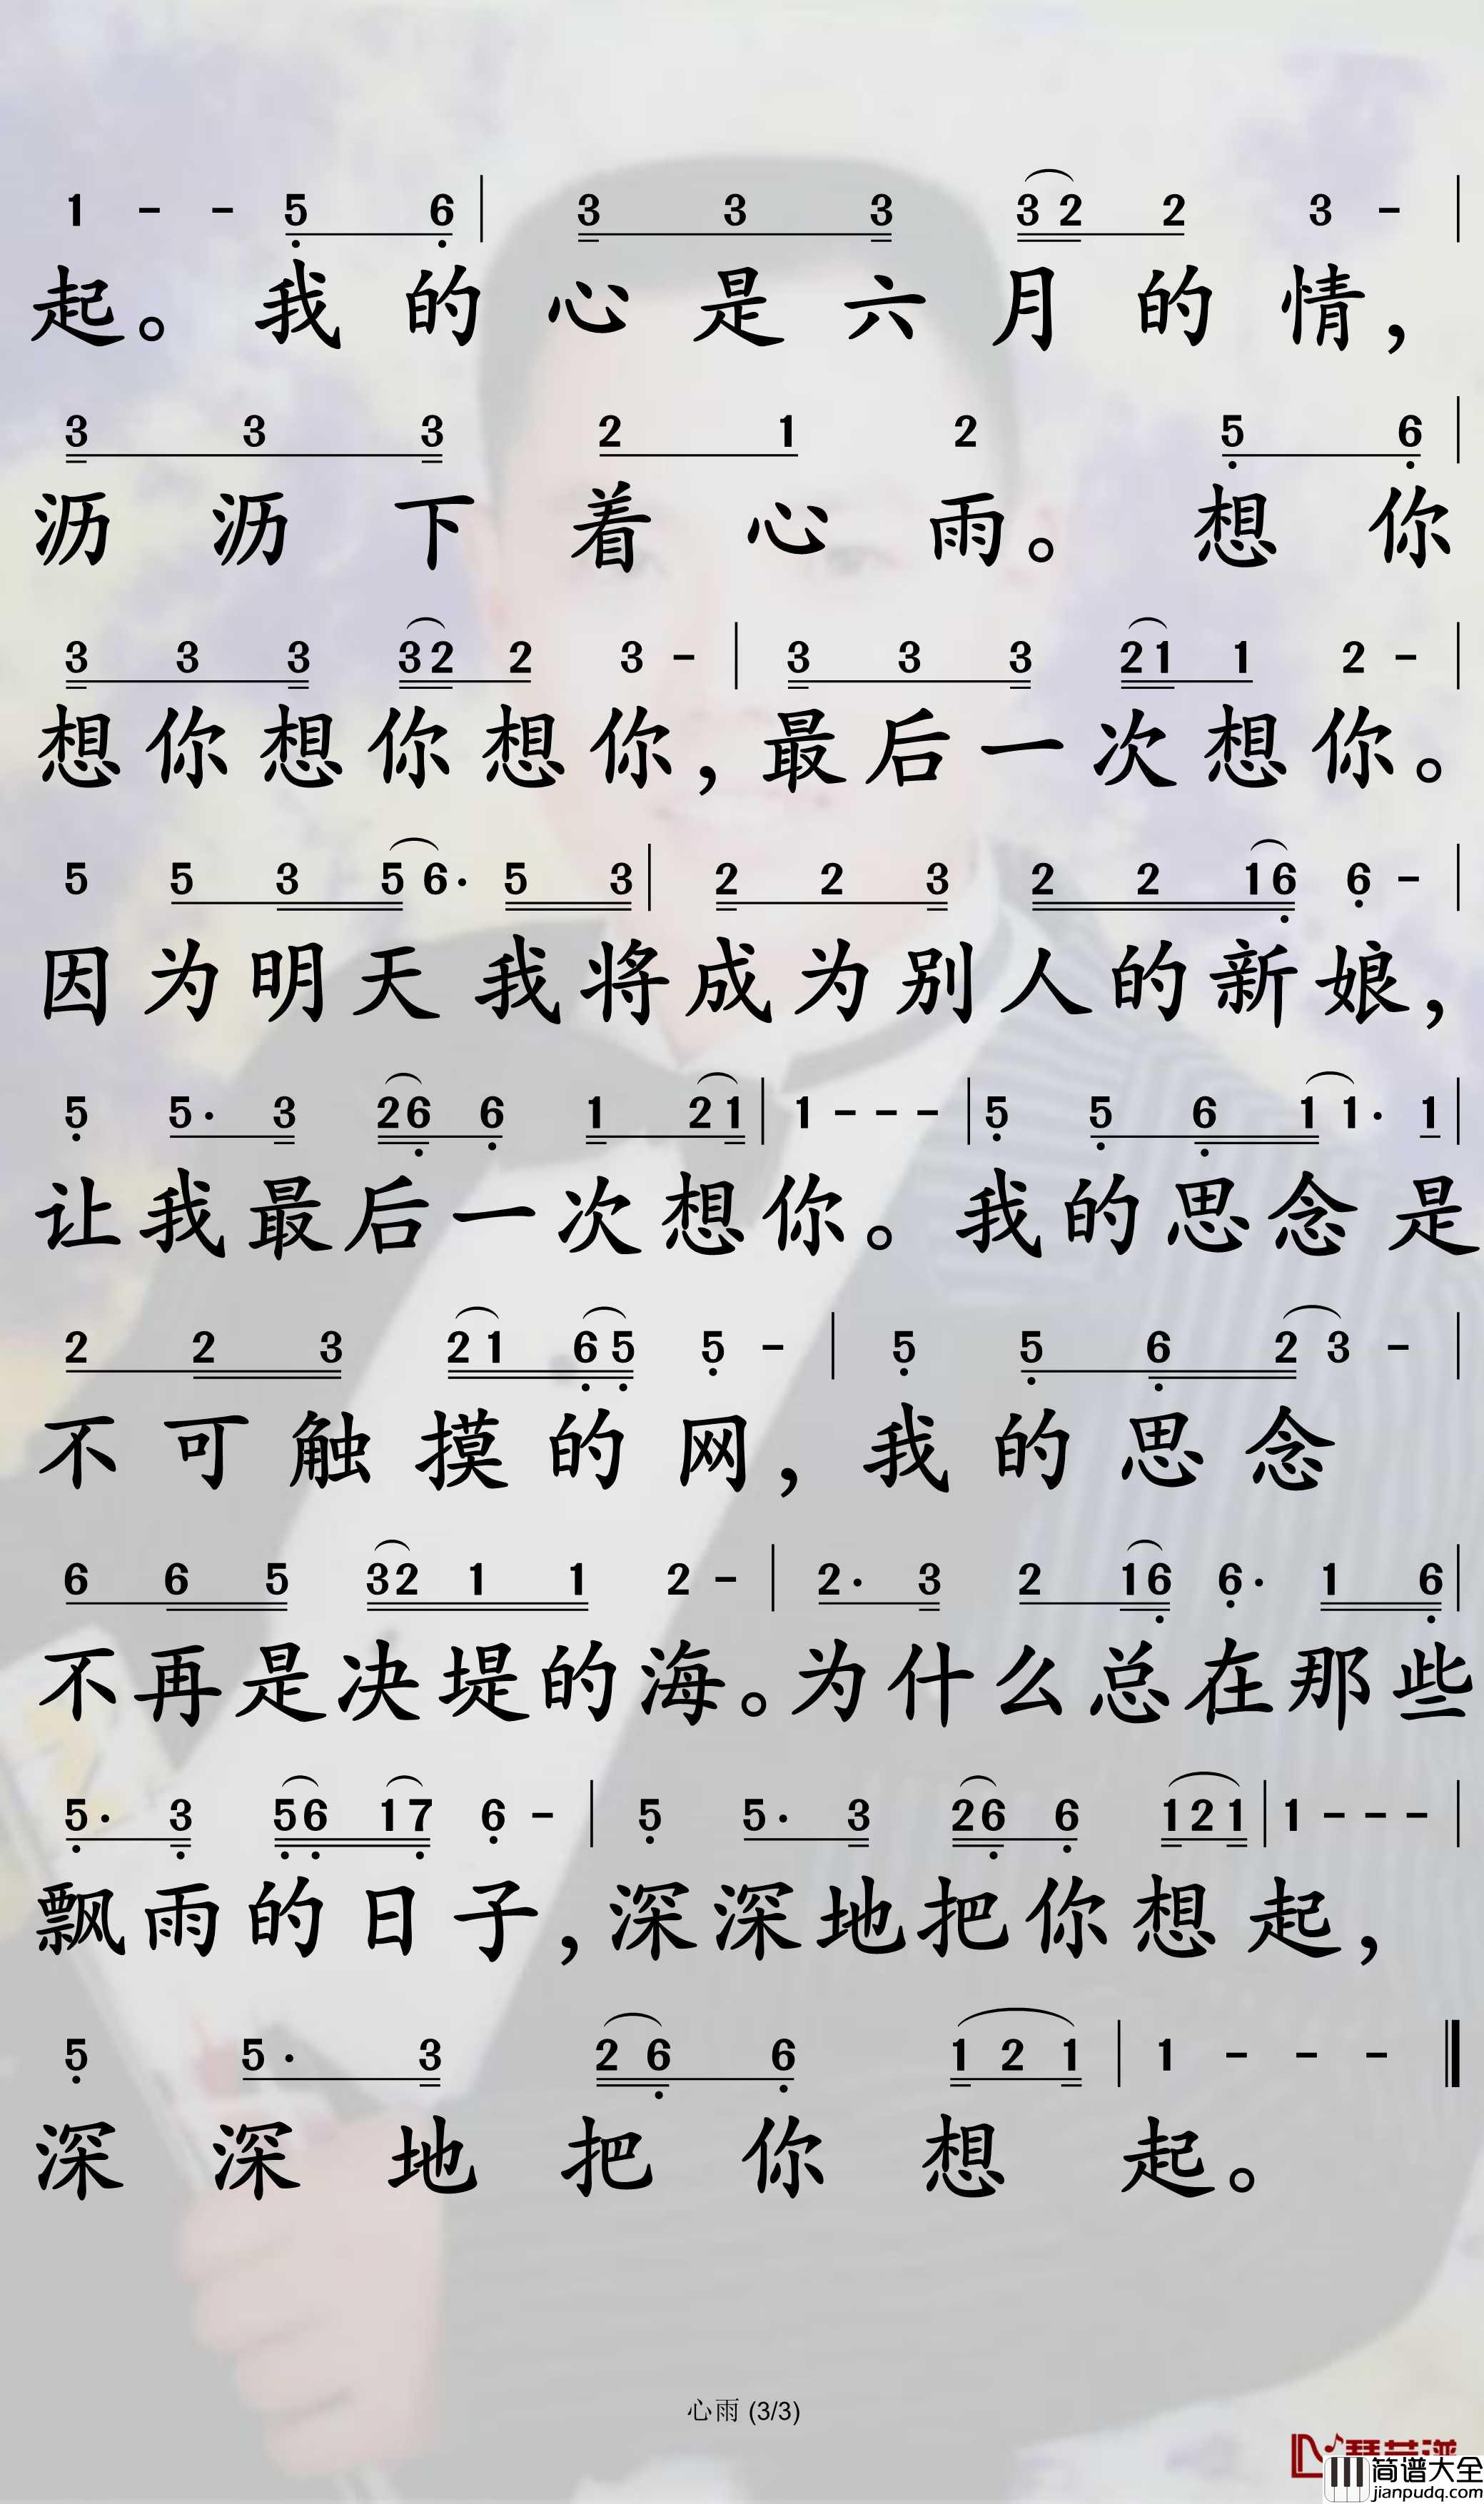 1 - - 5 6 | 3 3 3 3 2 2 3 - |
起。我的心是六月的情，
3 3 3 2 1 2 5 6 |
沥沥下着心雨。想你
3 3 3 3 2 2 3 - | 3 3 3 2 1 1 2 - |
想你想你想你，最后一次想你。
5 5 3 5 6· 5 3 | 2 2 3 2 2 1 6 6 - |
因为明天我将成为别人的新娘，
5 5· 3 2 6 6 1 2 1 | 1 - - - | 5 5 6 1 1· 1 |
让我最后一次想你。我的思念是
2 2 3 2 1 6 5 5 - | 5 5 6 2 3 - |
不可触摸的网，我的思念
6 6 5 3 2 1 1 2 - | 2· 3 2 1 6 6· 1 6 |
不再是决堤的海。为什么总在那些
5· 3 5 6 1 7 6 - | 5 5· 3 2 6 6 1 2 1 | 1 - - - |
飘雨的日子，深深地把你想起，
5 5· 3 2 6 6 1 2 1 | 1 - - - ‖
深深地把你想起。
心雨 (3/3)
简谱大全
jianpudq.com